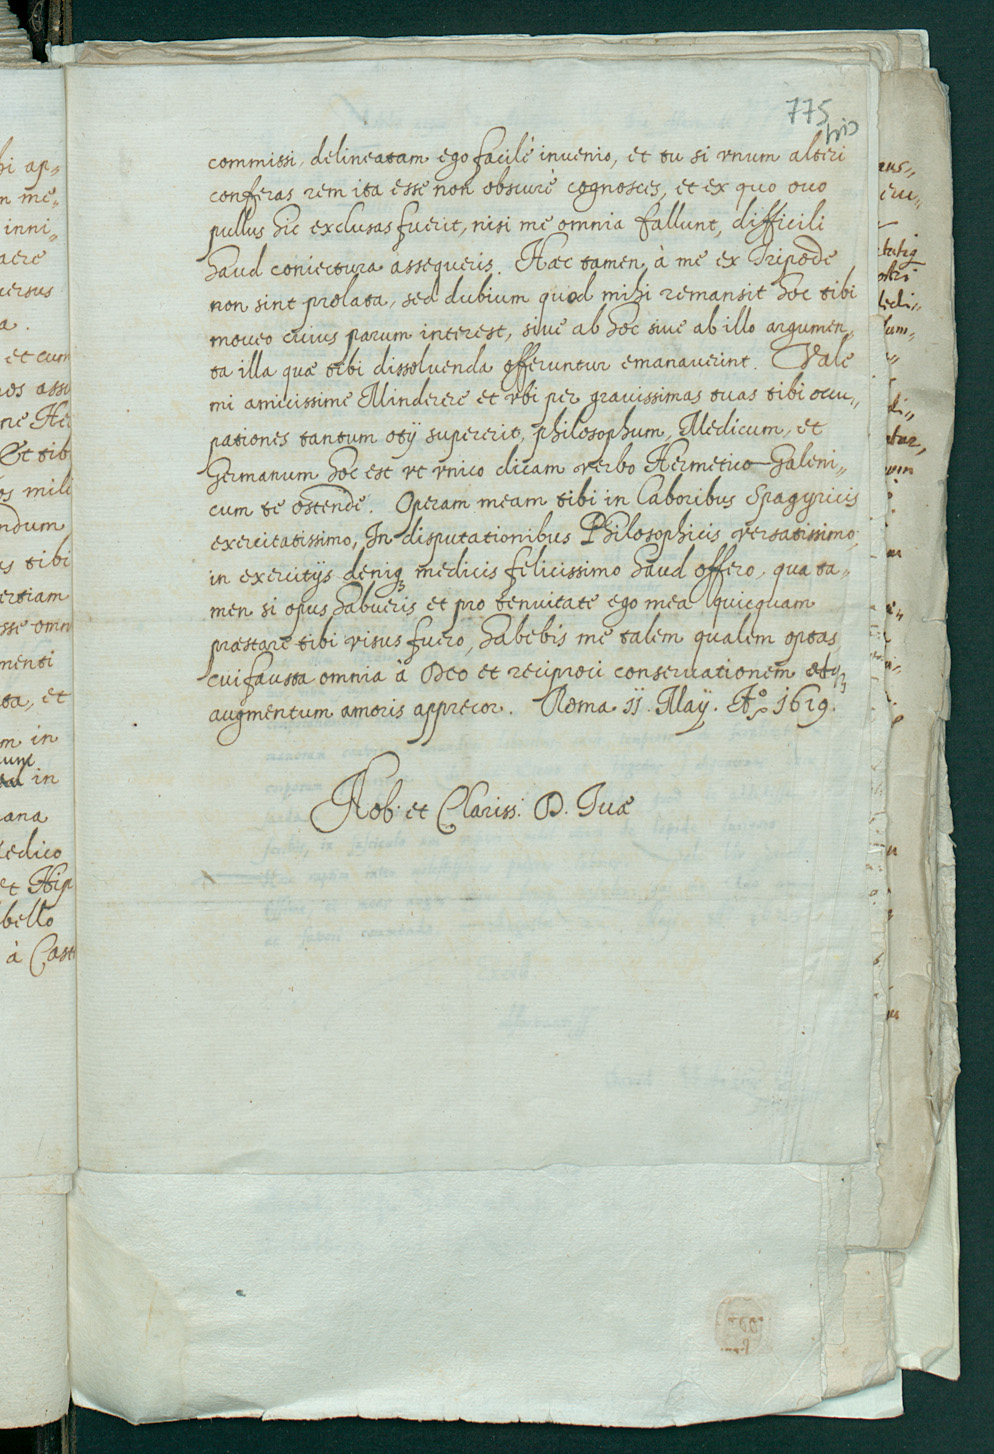 775
bis
commissi, delineatam ego facilè invenio, et tu si vnum alteri
conferas rem ita esse non obscurè cognosces, et ex quo ovo
pullus hic exclusus fuerit, nisi me omnia fallunt, difficili
haud coniectura assequeris. Hæc tamen à me ex Tripode
non sint prolata, sed dubium quod mihi remansit hoc tibi
moueo cuius parum interest, siue ab hoc siue ab illo argumen,
ta illa quæ tibi dissoluenda offeruntur emanauerint. Vale
mi amicissime Minderere et vbi per grauissimas tuas tibi occu,,
pationes tantum otÿ supererit, philosophum, Medicum, et
Germanum hoc est vt vnico dicam verbo Hermetico-Galeni,,
cum te ostende. Operam meam tibi in laboribus Spagyricis
exercitatissimo, In disputationibus Philosophicis versatissimo,
in exercitÿs deniq medicis felicissimo haud offero, qua ta,,
men si opus habueris et pro tenuitate ego mea quicquam
præstare tibi visus fuero, habebis me talem qualem optas,
cui fausta omnia à Deo et reciproci conseruationem
augmentum amoris apprecor. Roma 11. Maÿ. Aº 1619.
Nob. et Clariss. D. Tuæ
hi ap,
inni,
aere
versus
et cum
Et tib
os mili
ndum
tibi
ertiam
esse omn
menti
ta, et
m in
in
ana
edico
et Hip
bello
à Cast